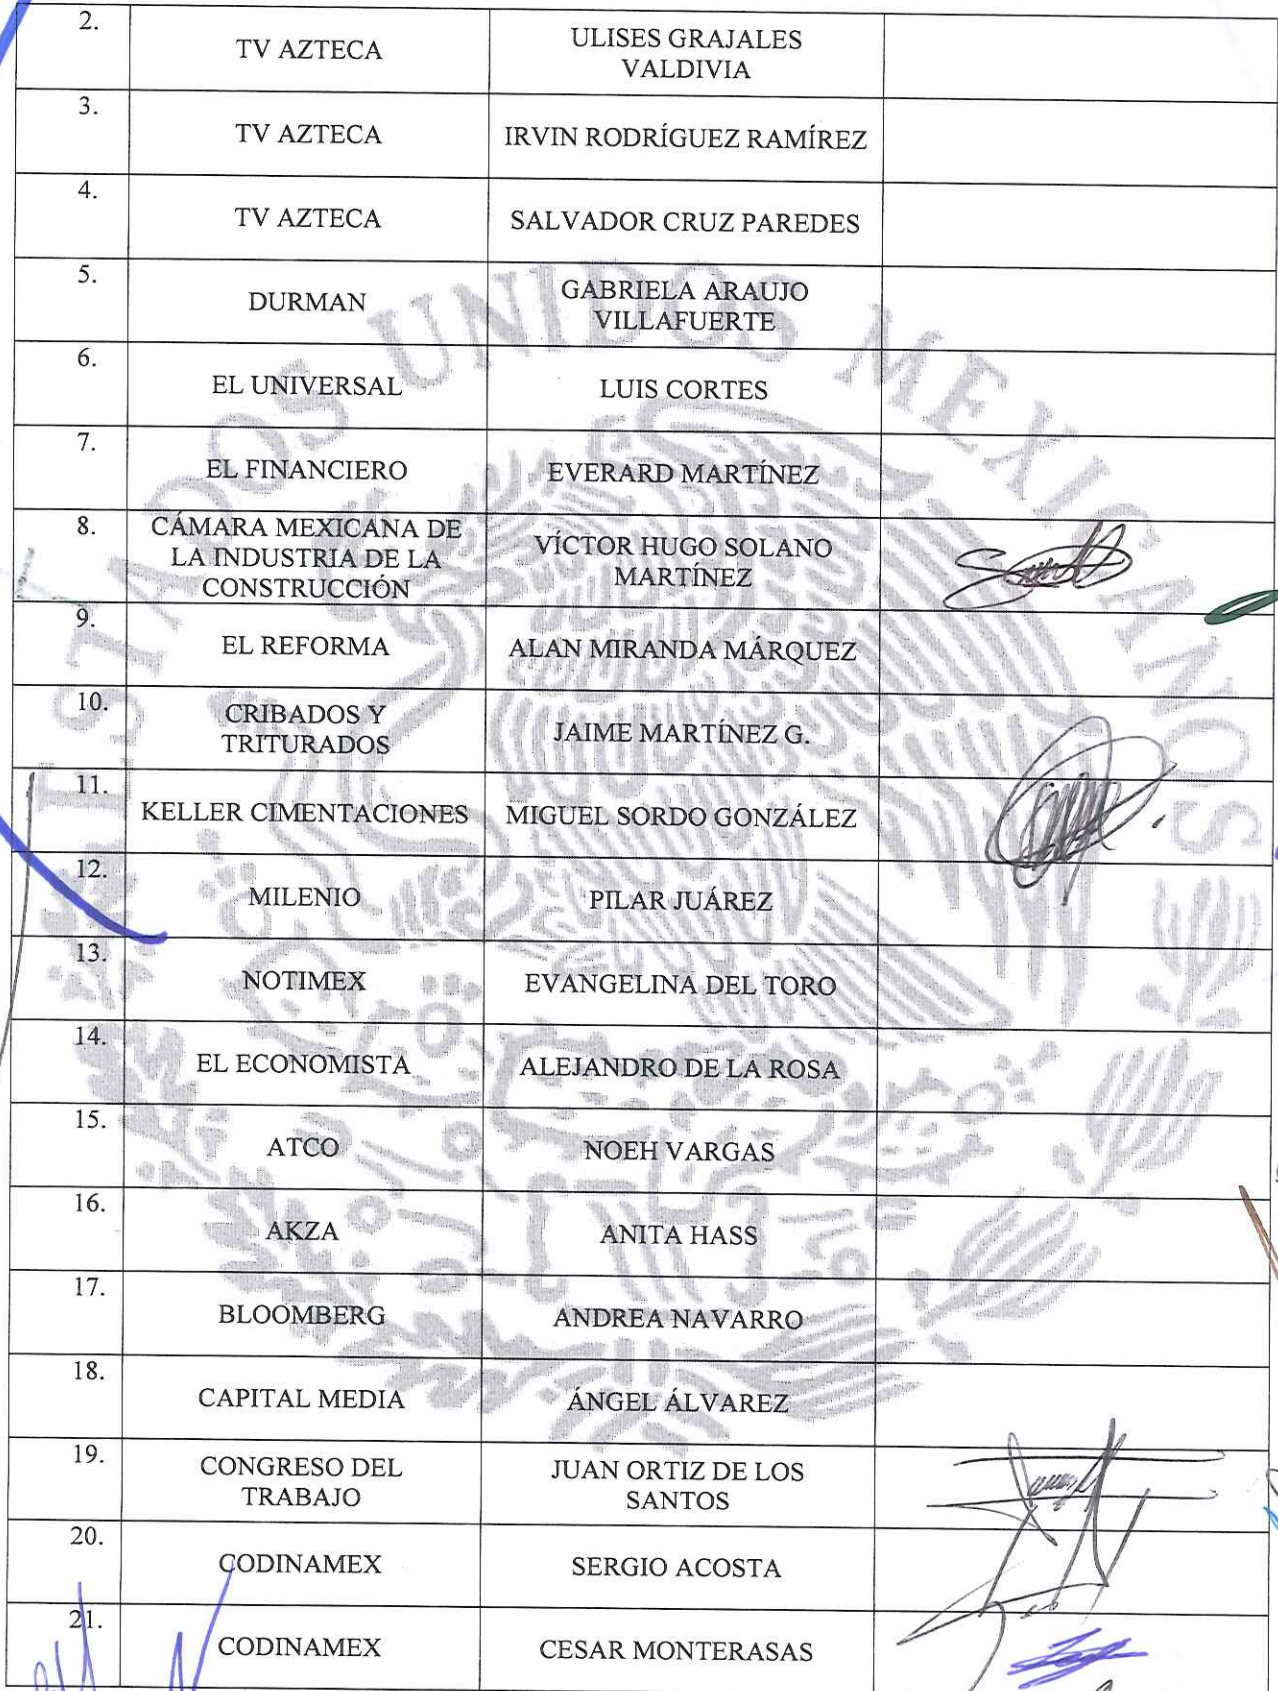 2.
TV AZTECA
ULISES GRAJALES
VALDIVIA
3.
TV AZTECA
IRVIN RODRÍGUEZ RAMÍREZ
4.
TV AZTECA
SALVADOR CRUZ PAREDES
5.
DURMAN
GABRIELA ARAUJO
VILLAFUERTE
6.
EL UNIVERSAL
LUIS CORTES
7.
EL FINANCIERO
EVERARD MARTÍNEZ
8.
CÁMARA MEXICANA DE
LA INDUSTRIA DE LA
CONSTRUCCIÓN
VÍCTOR HUGO SOLANO
MARTÍNEZ
9.
EL REFORMA
ALAN MIRANDA MÁRQUEZ
10.
CRIBADOS Y
TRITURADOS
JAIME MARTÍNEZ G.
11.
KELLER CIMENTACIONES
MIGUEL SORDO GONZÁLEZ
12.
MILENIO
PILAR JUÁREZ
13.
NOTIMEX
EVANGELINA DEL TORO
14.
EL ECONOMISTA
ALEJANDRO DE LA ROSA
15.
ATCO
NOEH VARGAS
16.
AKZA
ANITA HASS
17.
BLOOMBERG
ANDREA NAVARRO
18.
CAPITAL MEDIA
ÁNGEL ÁLVAREZ
19.
CONGRESO DEL
TRABAJO
JUAN ORTIZ DE LOS
SANTOS
20.
CODINAMEX
SERGIO ACOSTA
21.
CODINAMEX
CESAR MONTERASAS
ESTADOS UNIDOS MEXICANOS